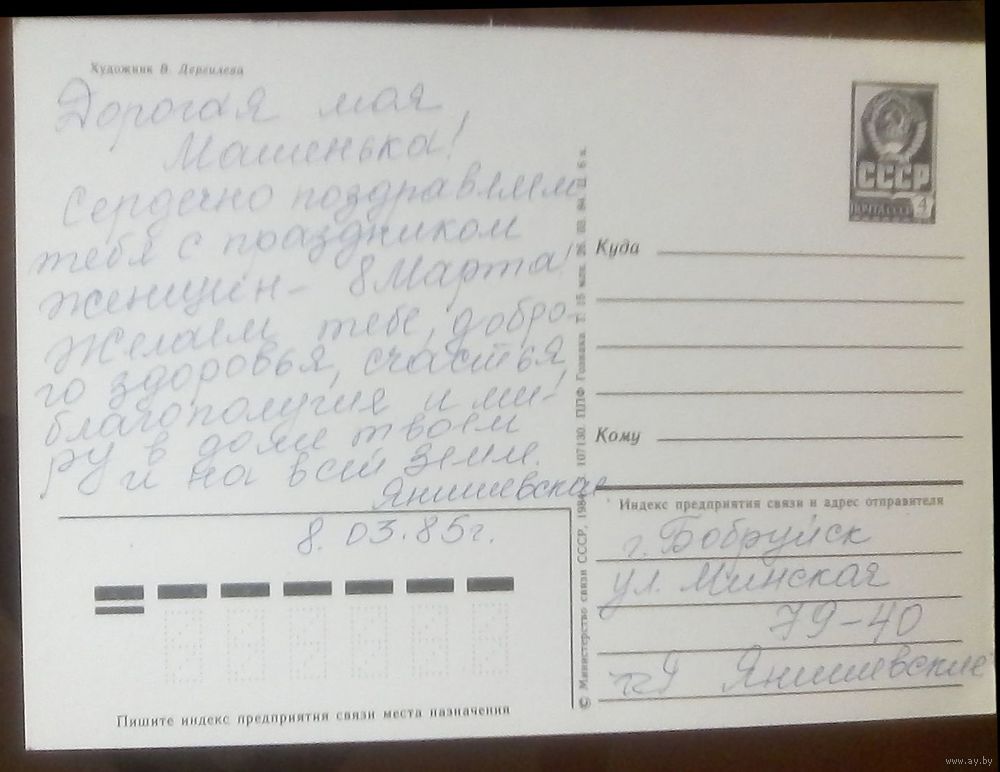 Художник В. Дергилева
Дорогая моя
Машенька!
Сердечно поздравляем
тебя с праздником
женщин - 8 Марта!
Желаем тебе, добро-
го здоровья, счастья,
благополучия и ми-
ру в доме твоем
и на всей земле.
Янишевские
8.03.85г.
Пишите индекс предприятия связи места назначения
© Министерство связи СССР, 1984
107130. ППФ Гознака
СССР
ПОЧТА СССР 4
Куда
Кому
Индекс предприятия связи и адрес отправителя
г. Бобруйск
ул. Минская
79-40
Янишевские
www.ay.by